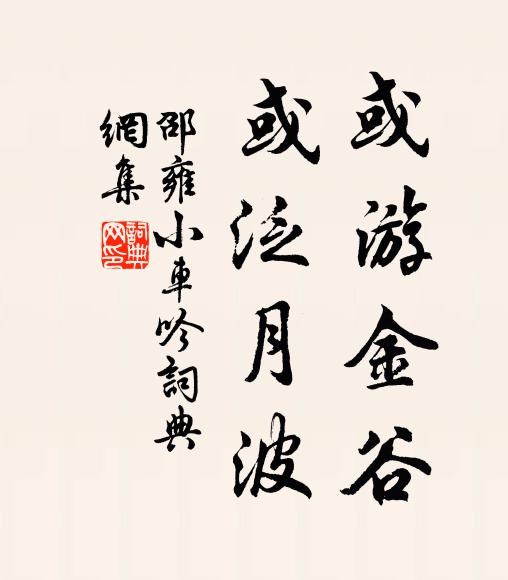 或游金谷
或泛月波
邵雍小車吟詞典
網集
詞典網印